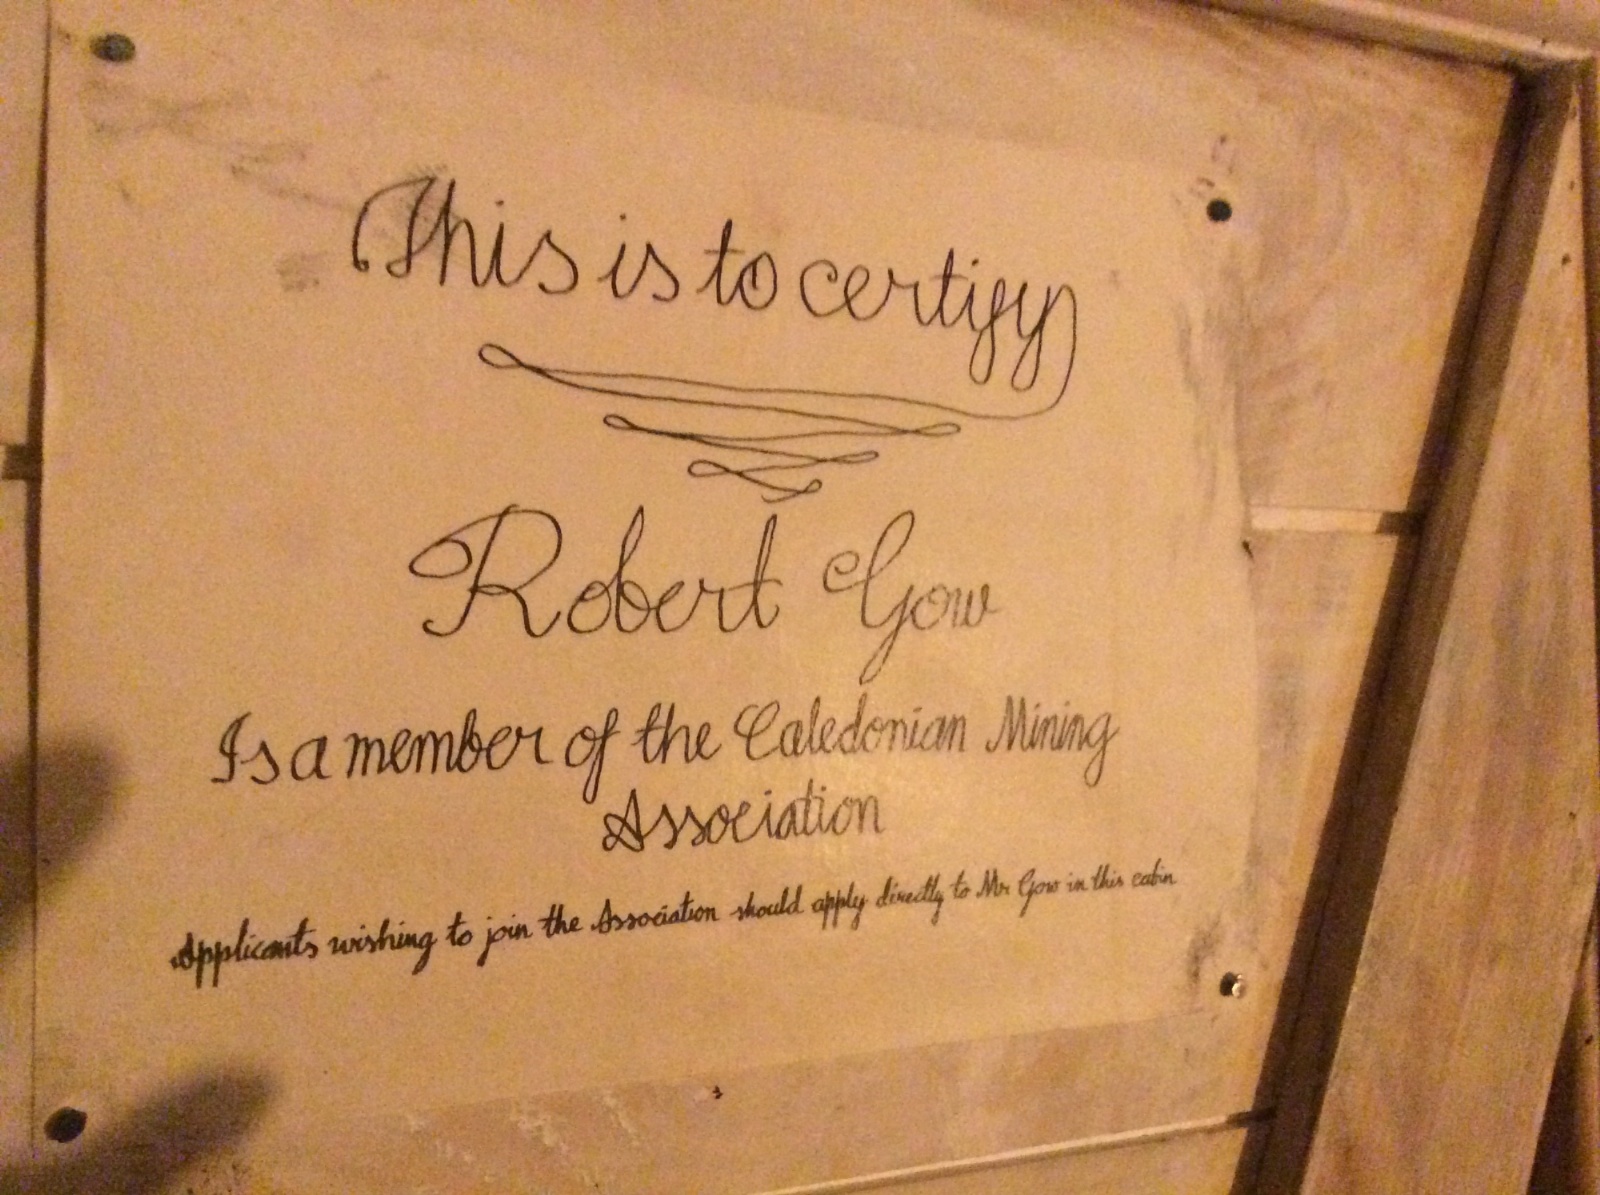 This is to certify
Robert Gow
Is a member of the Caledonian Mining
Association
Applicants wishing to join the Association should apply directly to Mr Gow in this cabin